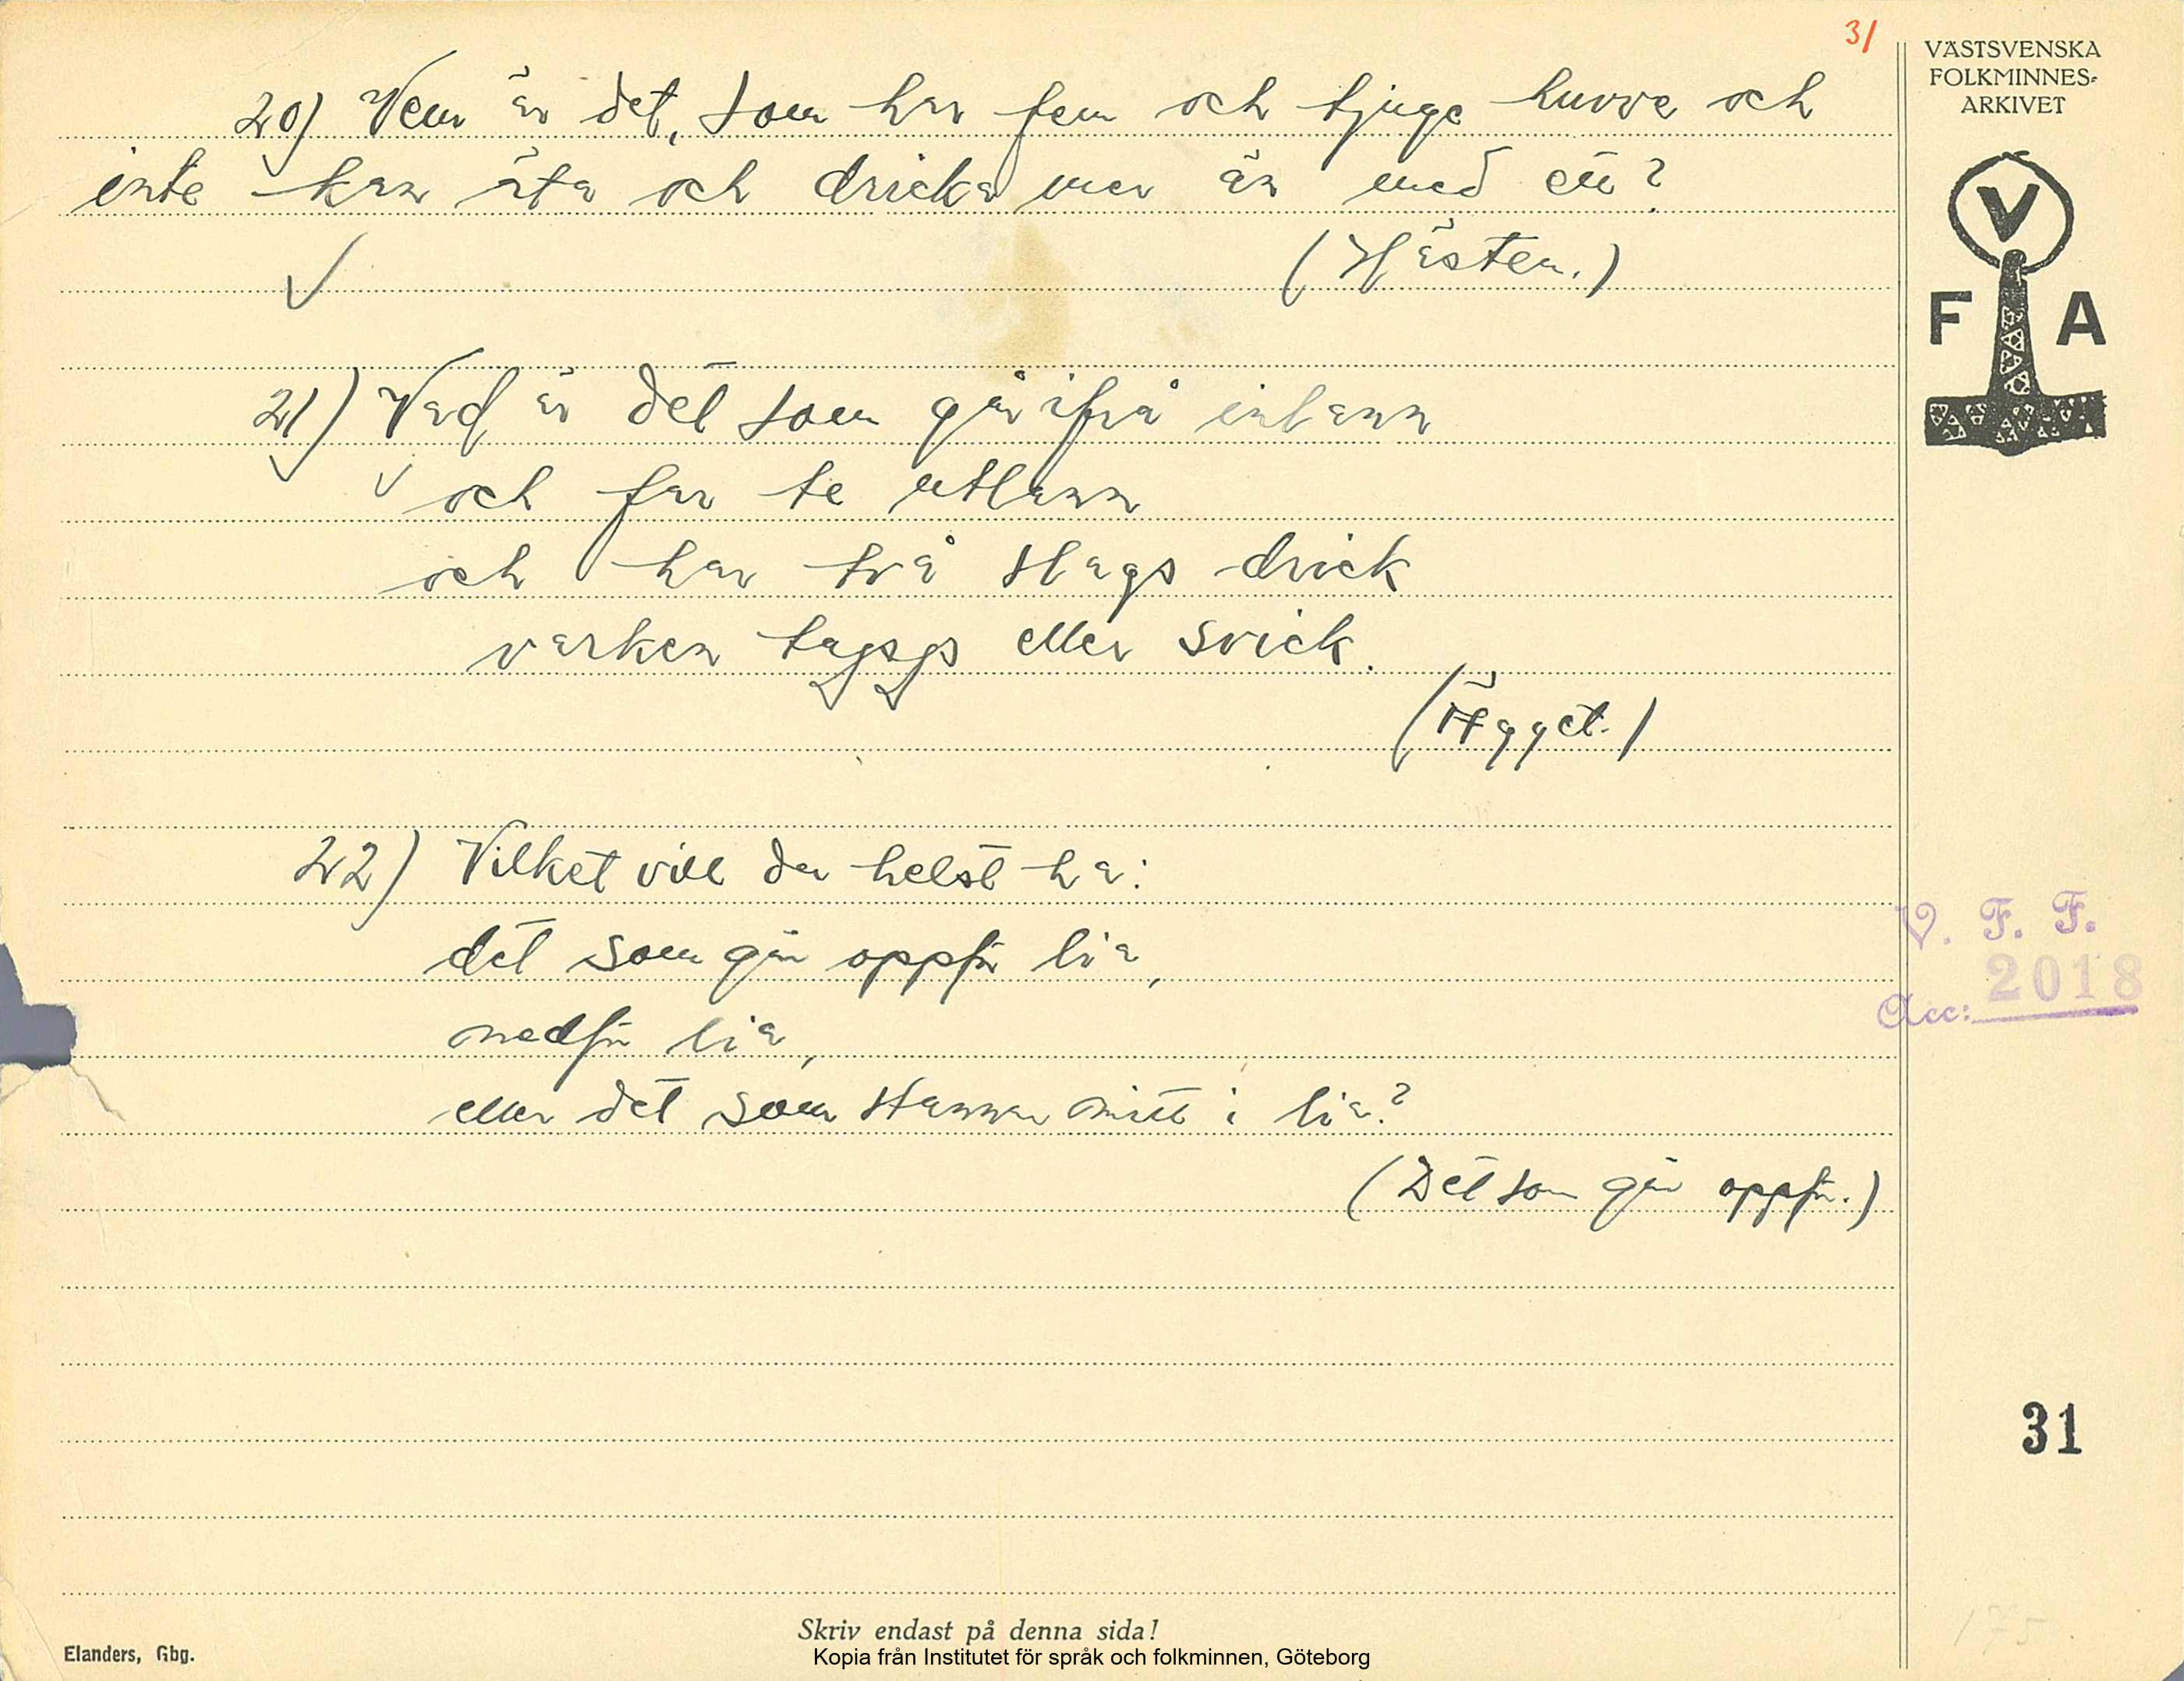 31
VÄSTSVENSKA
FOLKMINNES-
ARKIVET
V
F A
20) Vem är det, som har fem och tjuge huvve och
inte kan äta och dricka mer än med ett?
(Hästen.)
21) Vad är det som går ifrå inlann
och far te utlann
och har två slags drick
varken tapp eller svick.
(Ägget.)
22) Vilket vill du helst ha:
det som går oppför lia,
nedför lia,
eller det som stannar mitt i lia?
(Det som går oppför.)
V. F. F.
Acc: 2018
31
175
Skriv endast på denna sida!
Elanders, Gbg.
Kopia från Institutet för språk och folkminnen, Göteborg